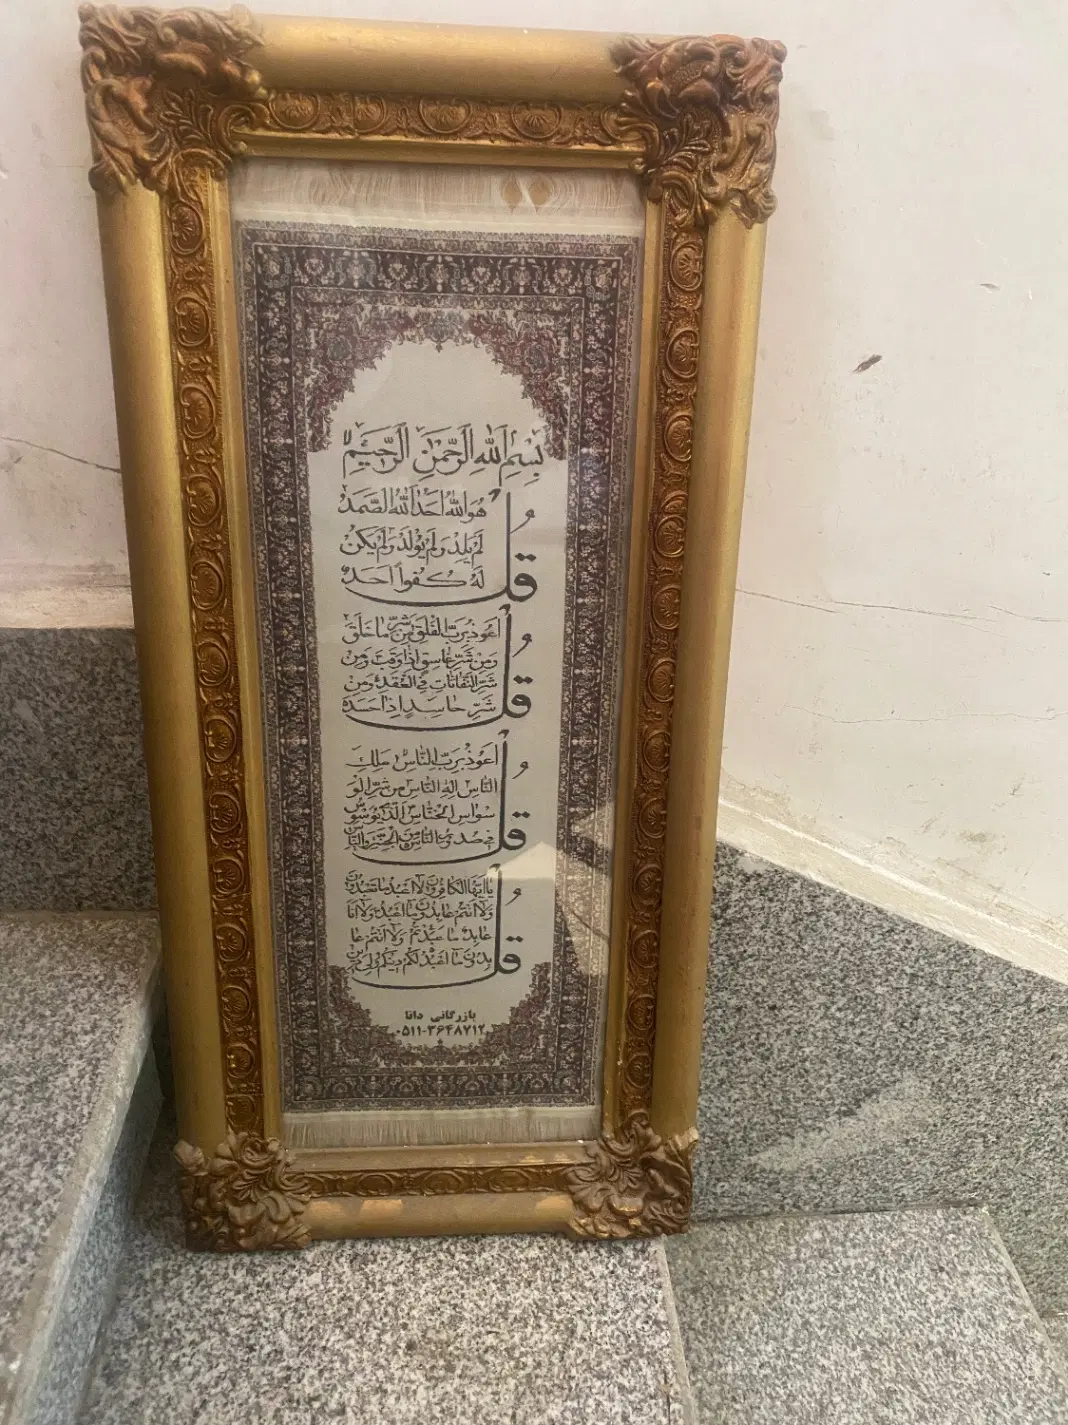 بِسْمِ اللهِ الرَّحْمٰنِ الرَّحيمِ
قُل هُوَ اللهُ اَحَدٌ اَللهُ الصَّمَدُ
لَمْ يَلِدْ وَلَمْ يُولَدْ وَلَمْ يَكُنْ
لَهُ كُفُواً اَحَدٌ
قُل اَعوذُ بِرَبِّ الْفَلَقِ مِنْ شَرِّ ما خَلَقَ
وَمِنْ شَرِّ غاسِقٍ اِذا وَقَبَ وَمِنْ
شَرِّ النَّفّاثاتِ فِي الْعُقَدِ وَمِنْ
شَرِّ حاسِدٍ اِذا حَسَدَ
قُل اَعوذُ بِرَبِّ النّاسِ مَلِكِ
النّاسِ اِلهِ النّاسِ مِنْ شَرِّ الْوَ
سْواسِ الْخَنّاسِ الَّذي يُوَسْوِسُ
في صُدُورِ النّاسِ مِنَ الْجِنَّةِ وَالنّاسِ
قُل يا اَيُّهَا الْكافِرُونَ لا اَعْبُدُ ما تَعْبُدُونَ
وَلا اَنْتُمْ عابِدُونَ ما اَعْبُدُ وَلا اَنَا
عابِدٌ ما عَبَدْتُمْ وَلا اَنْتُمْ عا
بِدُونَ ما اَعْبُدُ لَكُمْ دينُكُمْ وَلِيَ دينِ
بازرگانی دانا
۰۵۱۱-۳۶۴۸۷۱۲